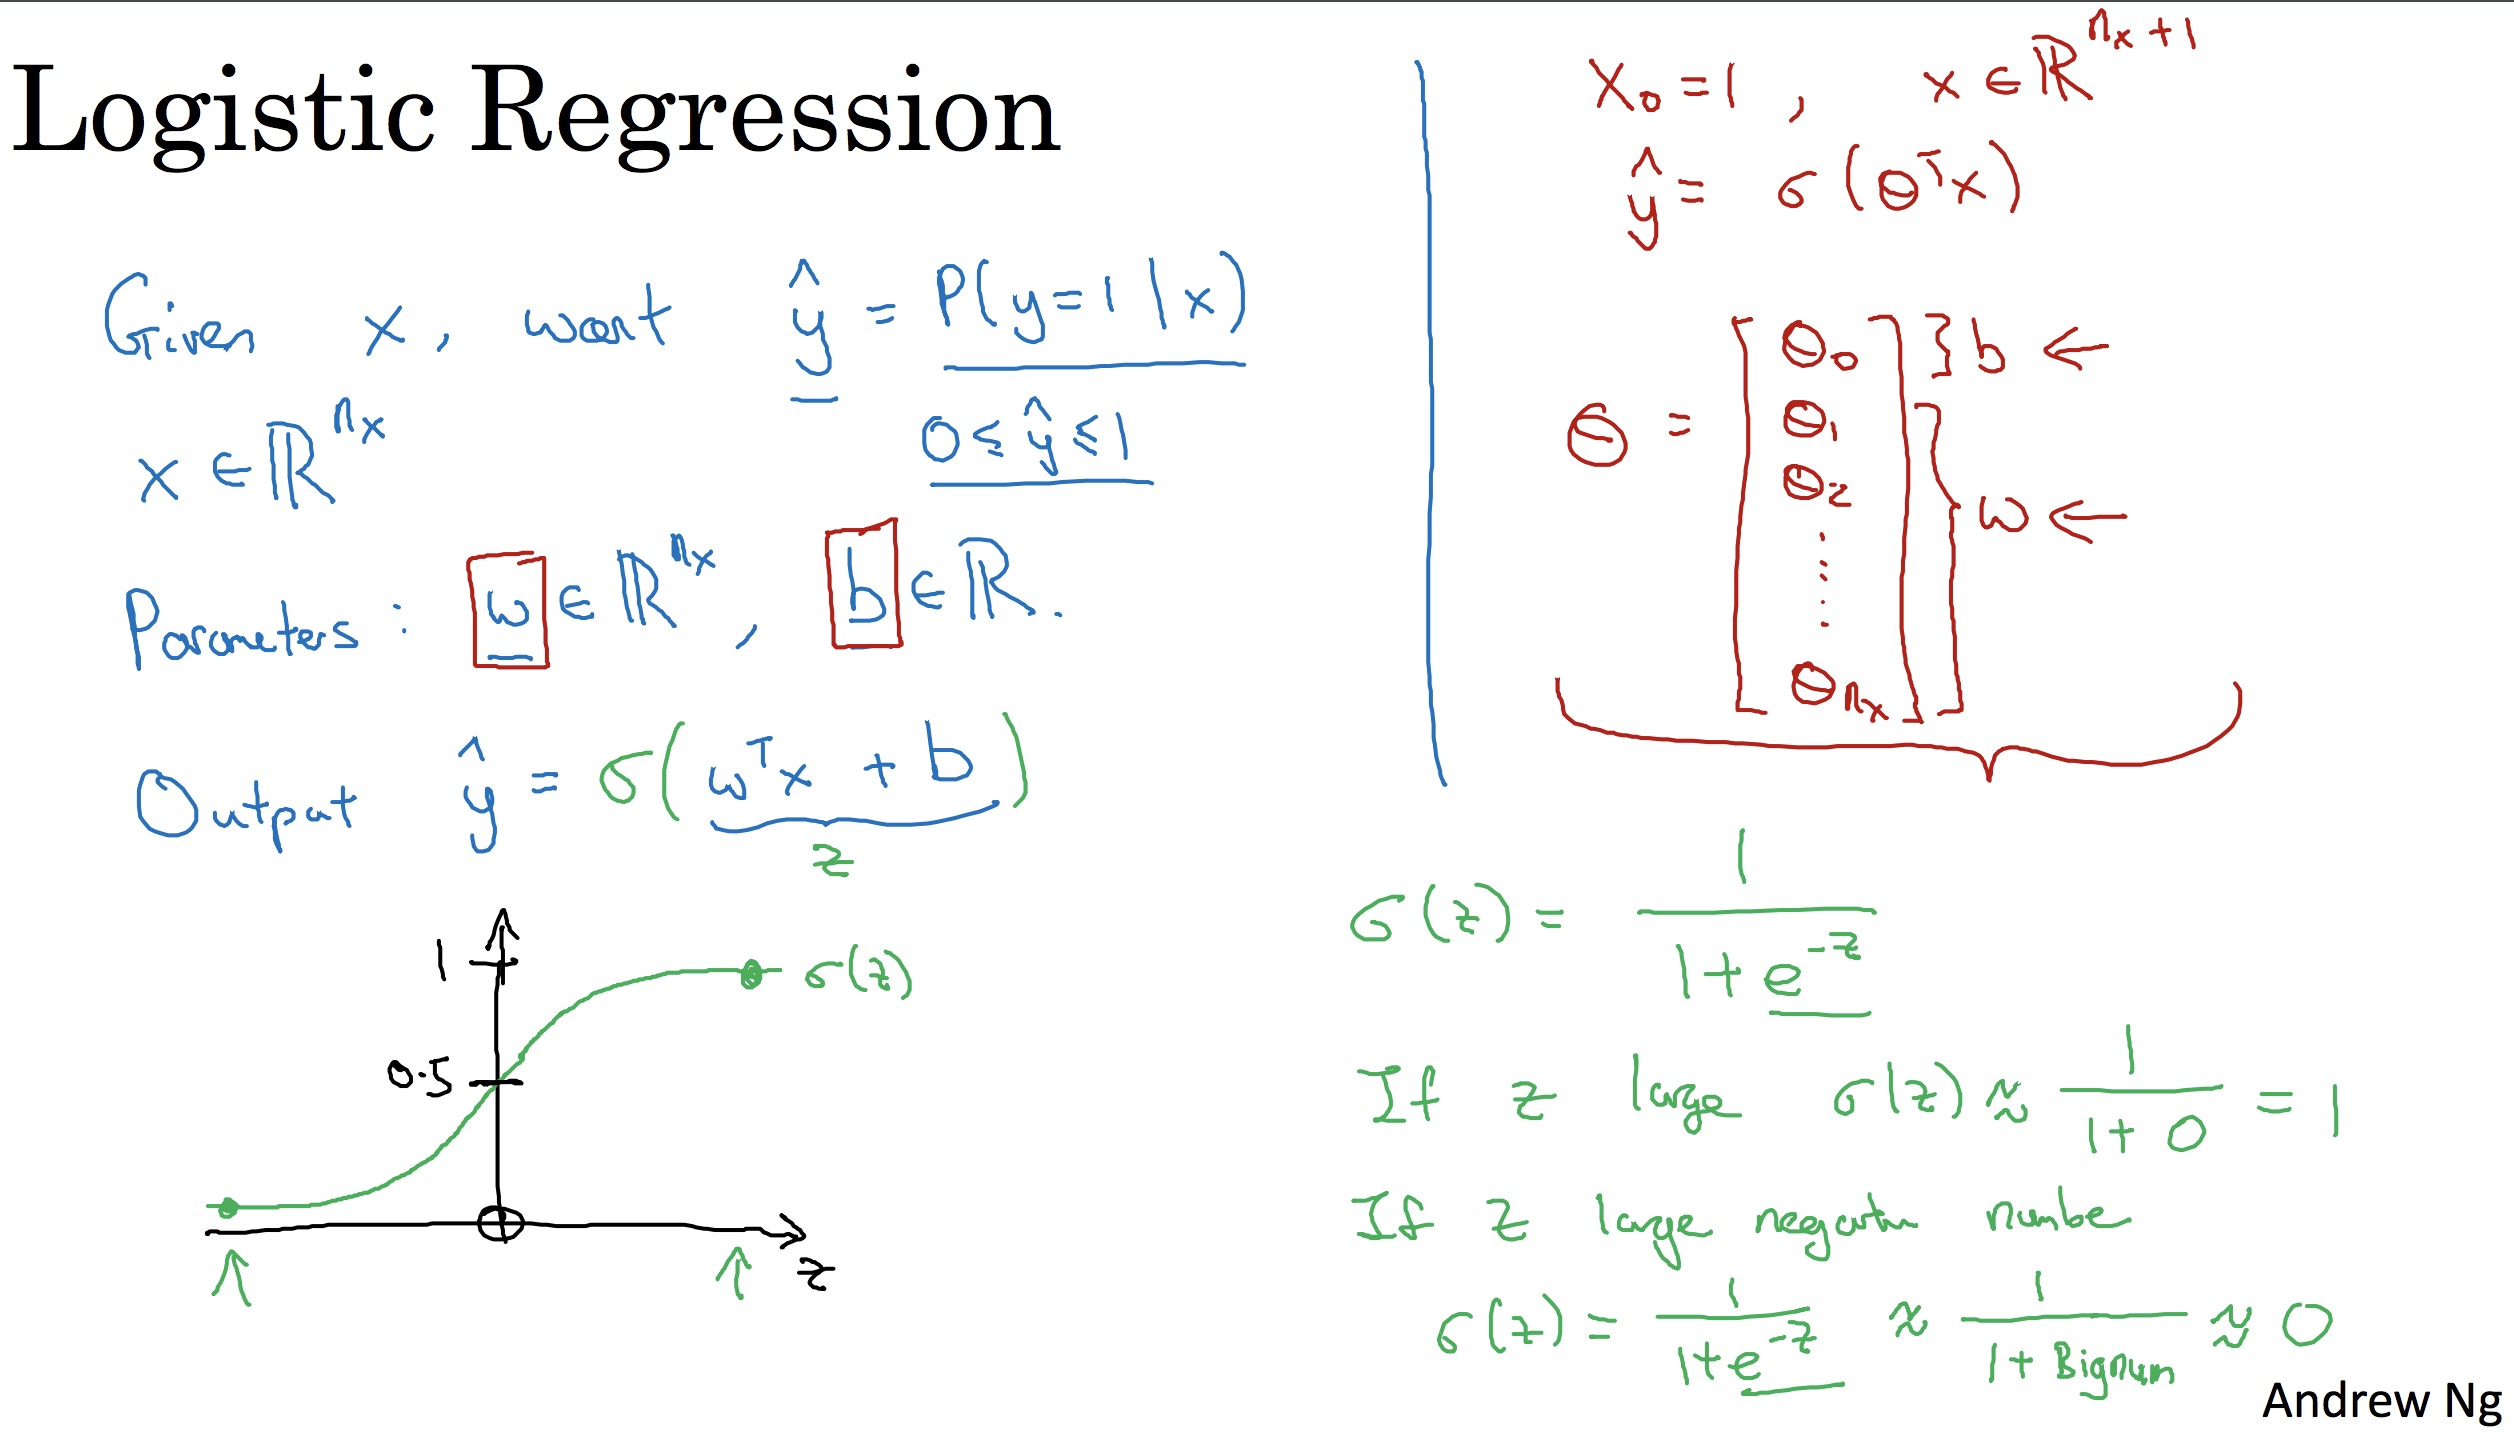 Logistic Regression
Given x, want ŷ = P(y=1|x)
0 ≤ ŷ ≤ 1
x ∈ ℝ^{n_x}
Parameters: w ∈ ℝ^{n_x}, b ∈ ℝ.
Output ŷ = σ(w^T x + b)
z
1
0.5
σ(z)
z
x_0 = 1, x ∈ ℝ^{n_x+1}
ŷ = σ(θ^T x)
θ = [θ_0 θ_1 θ_2 ⋮ θ_{n_x}] } b ← } w ←
σ(z) = 1/(1+e^{-z})
If z large σ(z) ≈ 1/(1+0) = 1
If z large negative number
σ(z) = 1/(1+e^{-z}) ≈ 1/(1+Bignum) ≈ 0
Andrew Ng